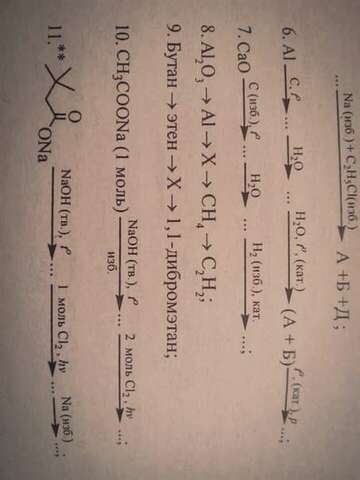 ... Na (изб) + C₂H₅Cl(изб) → А + Б + Д ;
6. Al C, t° → ... H₂O → ... H₂O, t°, (кат.) → (А + Б) t°, (кат), p → ...;
7. CaO C (изб.), t° → ... H₂O → ... H₂ (изб), кат. → ...;
8. Al₂O₃ → Al → X → CH₄ → C₂H₂;
9. Бутан → этен → X → 1,1-дибромэтан;
10. CH₃COONa (1 моль) NaOH (тв.), t° изб. → ... 2 моль Cl₂, hν → ...;
11.** O ONa NaOH (тв.), t° → ... 1 моль Cl₂, hν → ... Na (изб) → ...;